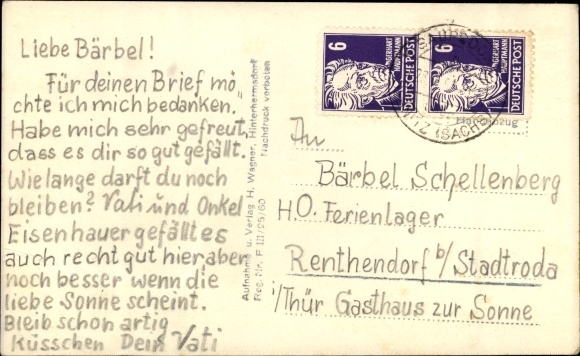 Liebe Bärbel!
Für deinen Brief mö
chte ich mich bedanken."
Habe mich sehr gefreut,
dass es dir so gut gefällt.
Wielange darft du noch
bleiben? Vati und Onkel
Eisenhauer gefällt es
auch recht gut hier aber
noch besser wenn die
liebe Sonne scheint.
Bleib schon artig
Küsschen Dein Vati
Aufnahme u. Verlag H. Wagner, Hinterhermsdorf
Reg. Nr. F III/25/60 Nachdruck verboten
6
GERHART
HAUPTMANN
DEUTSCHE POST
6
GERHART
HAUPTMANN
DEUTSCHE POST
(SACHS
An
Bärbel Schellenberg
H.O. Ferienlager
Renthendorf b/Stadtroda
i/Thür Gasthaus zur Sonne